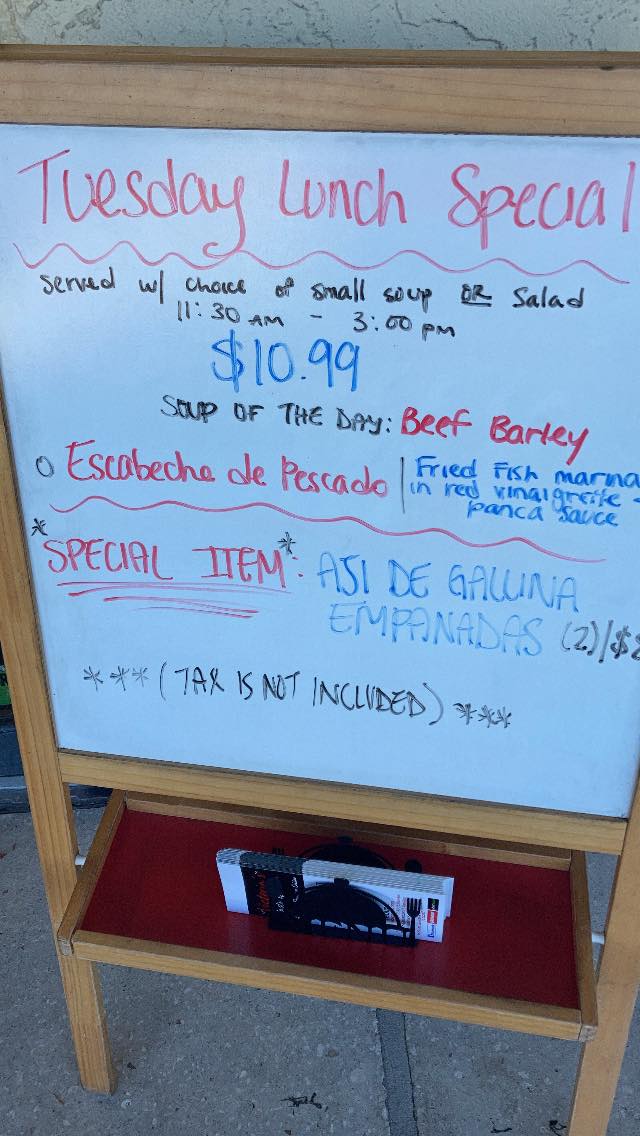 Tuesday Lunch Special
Served w/ choice of small soup OR Salad
11:30 AM - 3:00 PM
$10.99
SOUP OF THE DAY: Beef Barley
o Escabeche de Pescado | Fried Fish marina
in red vinaigrette -
panca sauce
*SPECIAL ITEM*: AJI DE GALLINA
EMPANADAS (2)/$
*** (TAX IS NOT INCLUDED) ***